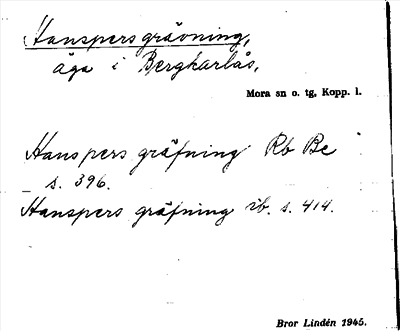 Hanspersgrävning,
äga i Bergkarlås.
Mora sn o. tg, Kopp. l.
Hanspers gräfning Rb Be
s. 396.
Hanspers gräfning ib. s. 414.
Bror Lindén 1945.